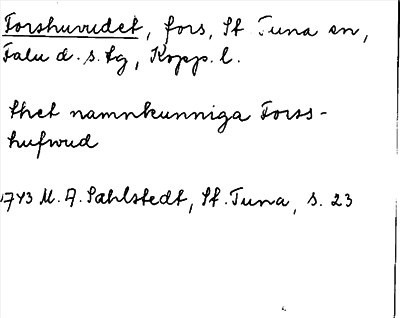 Forshuvudet, fors, St Tuna sn,
Falu d. s. tg, Kopp. l.
thet namnkunniga Forss-
hufwud
1743 M. A. Sahlstedt, St. Tuna, s. 23